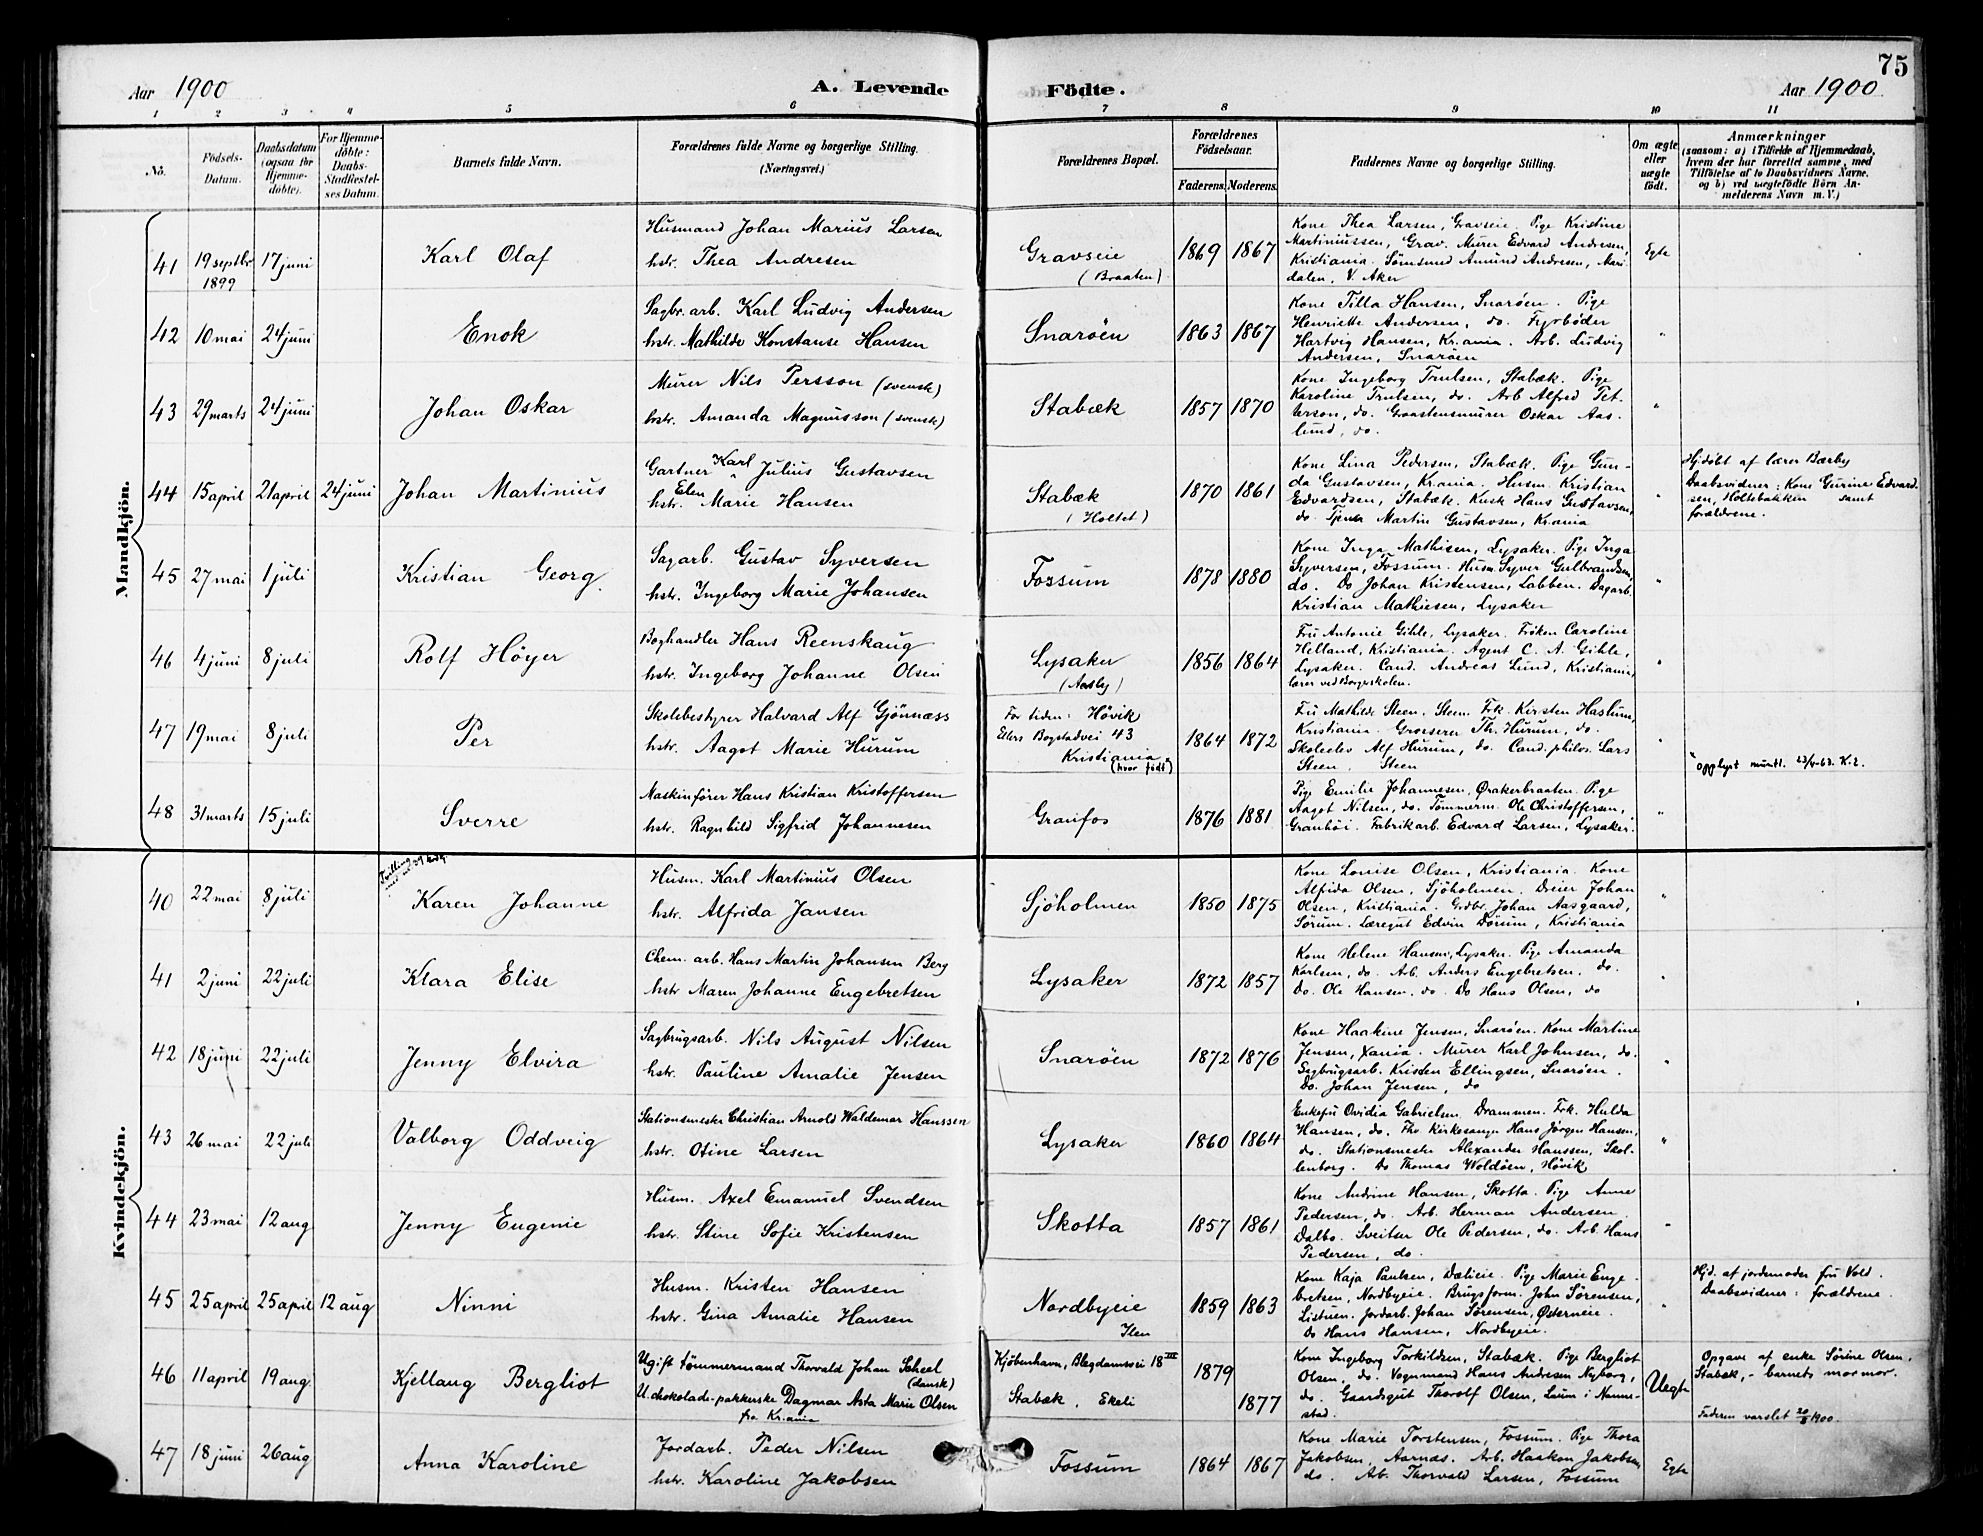 75
Aar 1900
A. Levende Födte.
Aar 1900
1 2 3 4 5 6 7 8 9 10 11
No.
Födsels-Datum.
Daabsdatum (ogsaa for Hjemme-döbte).
For Hjemme-döbte: Daabs-Stadfæstel-ses Datum.
Barnets fulde Navn.
Forældrenes fulde Navne og borgerlige Stilling. (Næringsvei.)
Forældrenes Bopæl.
Forældrenes Födselsaar.
Faderens. Moderens.
Faddernes Navne og borgerlige Stilling.
Om ægte eller uægte födt.
Anmærkninger
(saasom: a) i Tilfælde af Hjemmedaab, hvem der har forrettet samme, med Tilföielse af to Daabsvidners Navne, og b) ved uægtefödte Börn An-melderens Navn m. V.)
Mandkjön.
41 19 septbr 1899 17 juni Karl Olaf
Husmand Johan Marius Larsen
hstr. Thea Andresen
Gravseie
(Braaten)
1869 1867
Kone Thea Larsen, Gravseie. Pige Kristine
Martiniussen, Grav. Murer Edvard Andresen,
Kristiania. Tømsmd Amund Andresen, Mari-
dalen, V. Aker
Egte
42 10 mai 24 juni Enok
Sagbr. arb. Karl Ludvig Andersen
hstr. Mathilde Konstanse Hansen
Snarøen
1863 1867
Kone Tilla Hansen, Snarøen. Pige
Henriette Andersen, do. Fyrbøder
Hartvig Hansen, Kr.ania. Arb. Ludvig
Andersen, Snarøen
"
43 29 marts 24 juni Johan Oskar
Murer Nils Persson (svensk)
hstr. Amanda Magnusson (svensk)
Stabæk
1857 1870
Kone Ingeborg Trulsen, Stabæk. Pige
Karoline Trulsen, do. Arb Alfred Pet-
terson, do. Graastensmurer Oskar Aas-
lund, do.
"
44 15 april 21 april 24 juni Johan Martinius
Gartner Karl Julius Gustavsen
hstr. Elen Marie Hansen
Stabæk
(Holtet)
1870 1861
Kone Lina Pedersen, Stabæk. Pige Gun-
da Gustavsen, Kr.ania. Husm. Kristian
Edvardsen, Stabæk. Kusk Hans Gustavsen,
do. Tjener Martin Gustavsen, Kr.ania
"
Hjdøbt af lærer Bærby
Daabsvidner: Kone Gurine Edvard-
sen, Holtebakken samt
forældrene.
45 27 mai 1 juli Kristian Georg.
Sagarb. Gustav Syversen
hstr. Ingeborg Marie Johansen
Fossum
1878 1880
Kone Inga Mathisen, Lysaker. Pige Inga
Syversen, Fossum. Husm. Syver Gulbrandsen,
do. Do Johan Kristensen, Labben. Dagarb.
Kristian Mathiesen, Lysaker
"
46 4 juni 8 juli Rolf Höyer
Boghandler Hans Reenskaug
hstr. Ingeborg Johanne Olsen
Lysaker
(Aasly)
1856 1864
Fru Antonie Gihle, Lysaker. Frøken Caroline
Helland, Kristiania. Agent C. A. Gihle,
Lysaker. Cand. Andreas Lund, Kristiania,
lærer ved Borgerskolen.
"
47 19 mai 8 juli Per
Skolebestyrer Halvard Alf Gjönnæss
hstr. Aagot Marie Hurum
For tiden: Hövik
Ellers Bogstadvei 43
Kristiania
(hvor født")
1864 1872
Fru Mathilde Steen, Steen. Frk. Kirsten Haslum,
Kristiania. Grosserer Th. Hurum, do.
Skoleelev Alf Hurum, do. Cand. philos. Lars
Steen, Steen
"
" opplyst muntl. 23/4-63. K.E.
48 31 marts 15 juli Sverre
Maskinfører Hans Kristian Kristoffersen
hstr. Ragnhild Sigfrid Johannesen
Granfos
1876 1881
Pige Emilie Johannesen, Ørakerbraaten. Pige
Aagot Nilsen, do. Tömmerm. Ole Christoffersen,
Granhöi. Fabrikarb. Edvard Larsen, Lysaker.
"
Kvindekjön.
40 22 mai 8 juli Karen Johanne
Tvilling
Husm. Karl Martinius Olsen
hstr. Alfrida Jansen
Sjöholmen
1850 1875
Kone Louise Olsen, Kristiania. Kone
Alfida Olsen, Sjöholmen. Dreier Johan
Olsen, Kristiania. Grdbr. Johan Aasgaard,
Sørum. Læregut Edvin Dørum, Kristiania
"
41 2 juni 22 juli Klara Elise
Chem. arb. Hans Martin Johansen Berg
hstr Maren Johanne Engebretsen
Lysaker
1872 1857
Kone Helene Hansen, Lysaker. Pige Amanda
Karlsen, do. Arb. Anders Engebretsen, do.
Do. Ole Hansen, do. Do Hans Olsen, do
"
42 18 juni 22 juli Jenny Elvira
Sagbrugsarb. Nils August Nilsen
hstr. Pauline Amalie Jensen
Snarøen
1872 1876
Kone Haakine Jensen, Snarøen. Kone Martine
Jensen, Xania. Murer Karl Johnsen, do.
Sagbrugsarb. Kristen Ellingsen, Snarøen.
Do. Johan Jensen, do
"
43 26 mai 22 juli Valborg Oddveig
Stationsmester Christian Arnold Waldemar Hanssen
hstr. Otine Larsen
Lysaker
1860 1864
Enkefru Ovidia Gabrielsen Drammen. Frk. Hulda
Hansen, do. Fhv. Kirkesanger Hans Jørgen Hansen,
do. Stationsmester Alexander Hanssen, Skol-
lenborg. Do Thomas Woldöen, Hövik
"
44 23 mai 12 aug Jenny Eugenie
Husm. Axel Emanuel Svendsen
hstr. Stine Sofie Kristensen
Skotta
1857 1861
Kone Andrine Hansen, Skotta. Pige Anne
Pedersen, do. Arb. Herman Andersen
Dalbo. Sveitser Ole Pedersen, do. Arb. Hans
Pedersen, do.
"
45 25 april 25 april 12 aug Ninni
Husm. Kristen Hansen
hstr. Gina Amalie Hansen
Nordbyeie
Ilen
1859 1863
Kone Kaja Paulsen, Dælieie. Pige Marie Enge-
bretsen, Nordbyeie. Brugsform. John Sörensen,
Listuen. Jordarb. Johan Sörensen, Østerneie.
Do Hans Hansen, Nordbyeie.
"
Hjd. af jordemoder fru Vold.
Daabsvidner: forældrene.
46 11 april 19 aug. Kjellaug Bergliot
Ugift tömmermand Thorvald Johan Scheel
(dansk)
U. chokolade-pakkerske Dagmar Asta Marie Olsen
fra Kr.ania
Kjöbenhavn, Blegdamsvei 18 III
Stabæk, Ekeli
1879
1877
Kone Ingeborg Torkildsen, Stabæk. Pige Bergliot
Olsen, do. Vognmand Hans Andresen Nyborg,
do. Gaardsgut Thorolf Olsen, Laum i Nanne-
stad.
Uegte
Opgave af enke Sörine Olsen,
Stabæk, - barnets mormor.
Faderen varslet 20/8 1900.
47 18 juni 26 aug Anna Karoline
Jordarb. Peder Nilsen
hstr. Karoline Jakobsen
Fossum
1864 1867
Kone Marie Torstensen, Fossum. Pige Thora
Jakobsen, Aarnæs. Arb. Haakon Jakobsen,
do. Arb. Thorvald Larsen, Fossum
Egte